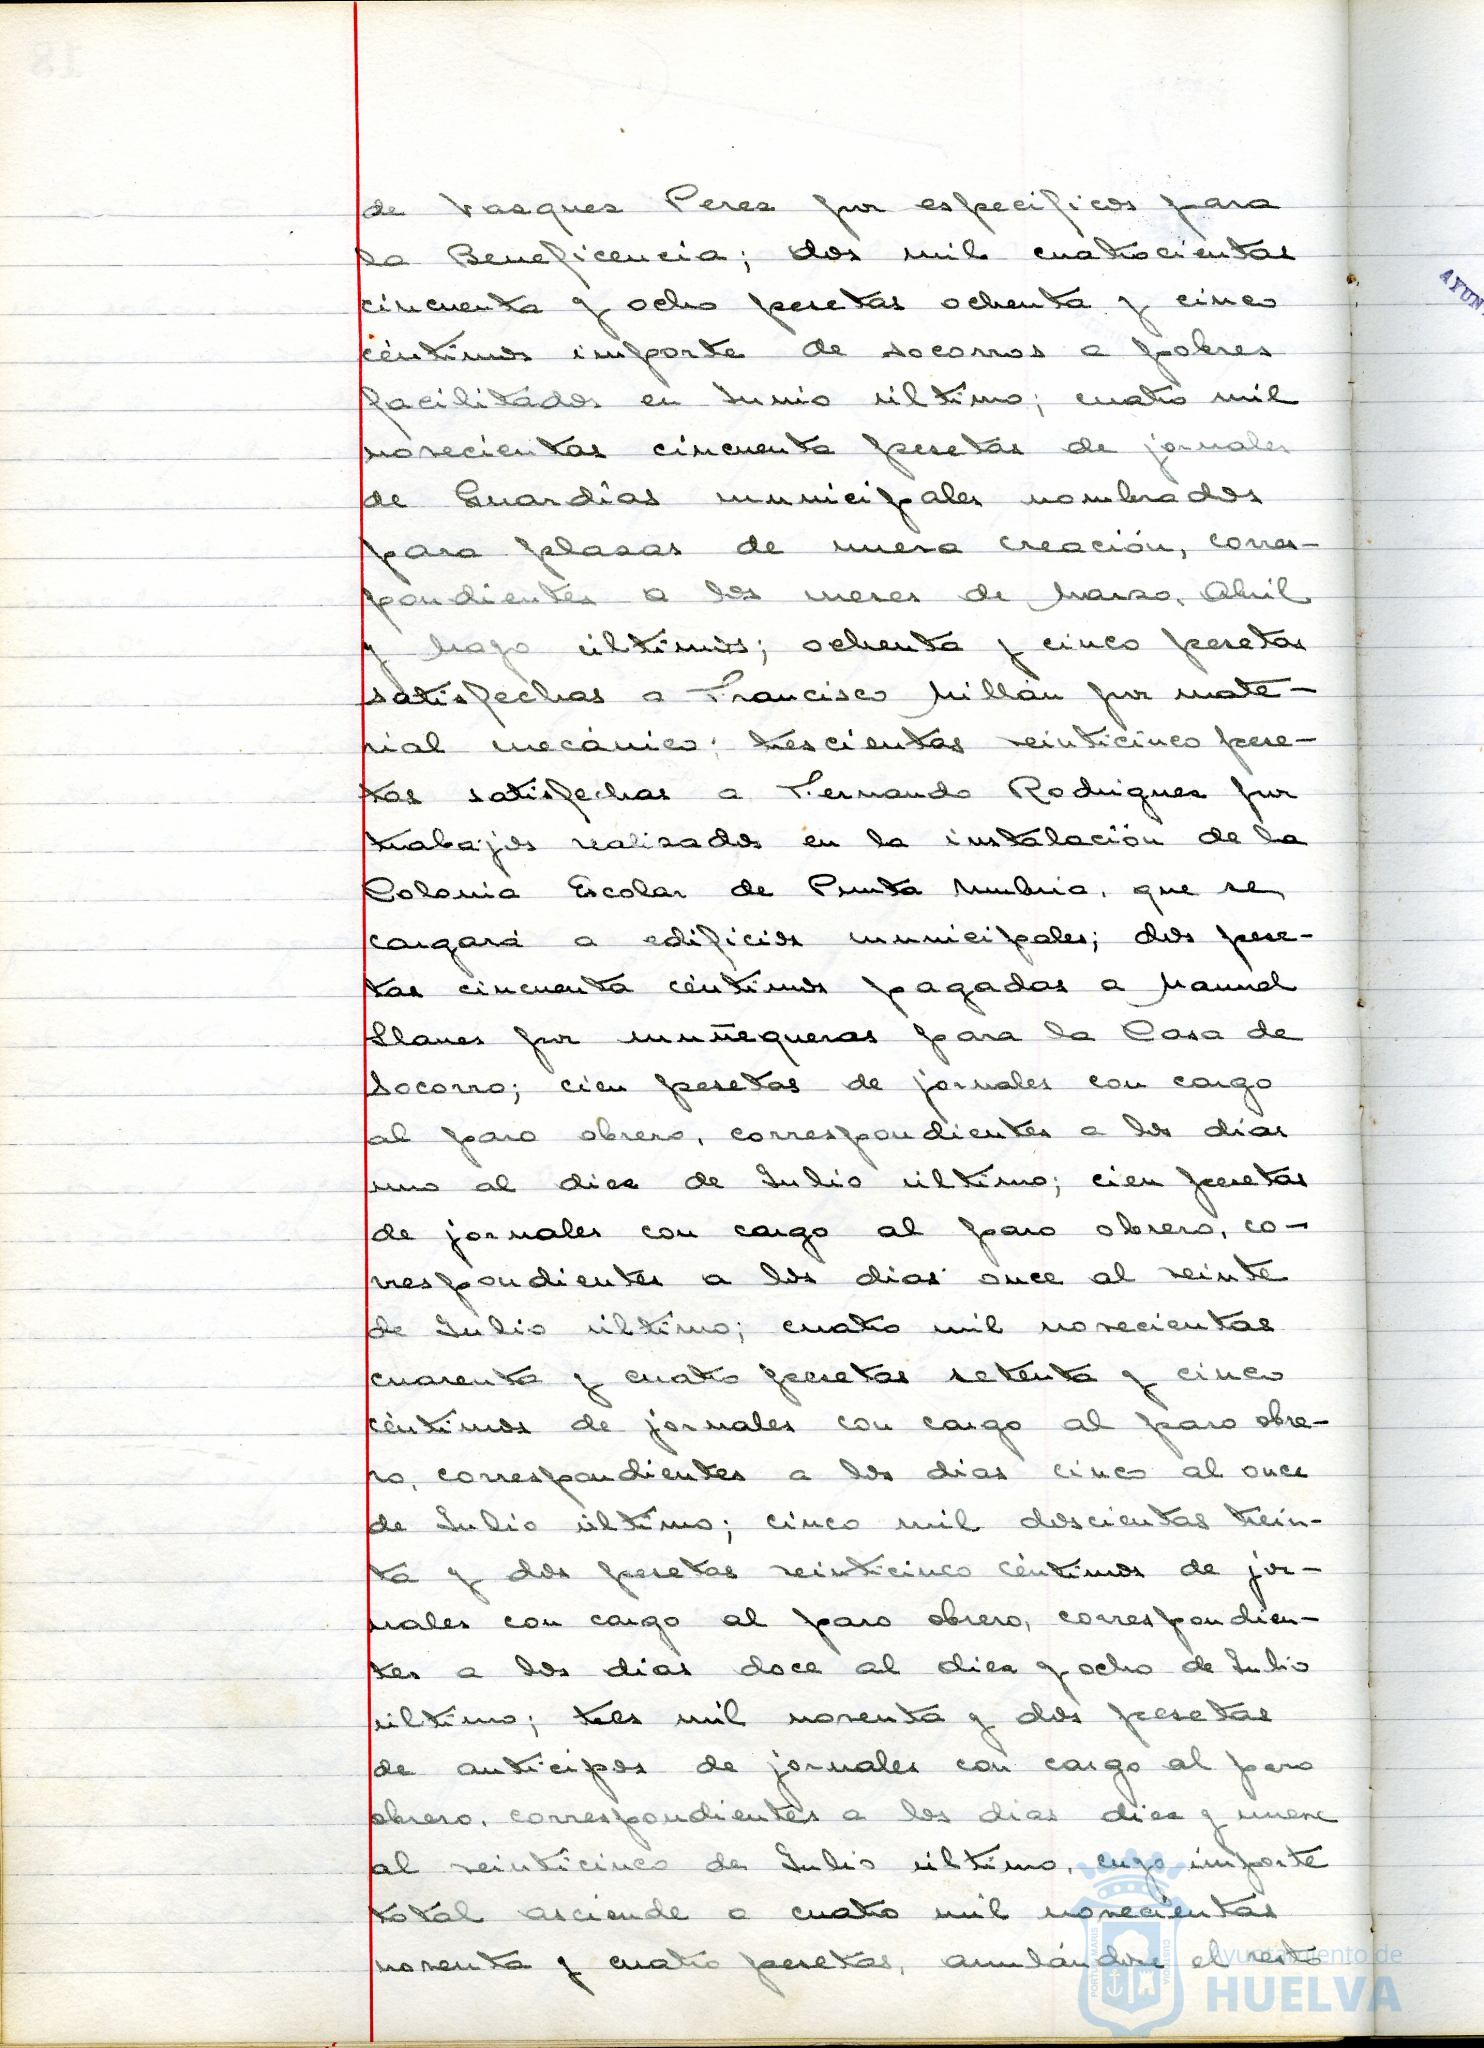 de Vasques Peres por especificos para
la Beneficencia; dos mil cuatrocientas
cincuenta y ocho pesetas ochenta y cinco
céntimos importe de socorros a pobres
facilitados en Junio último; cuatro mil
novecientas cincuenta pesetas de jornales
de Guardias municipales nombrados
para plazas de nueva creación, corres-
pondientes a los meses de Marzo, Abril
y Mayo últimos; ochenta y cinco pesetas
satisfechas a Francisco Millán por mate-
rial mecánico; trescientas veinticinco pese-
tas satisfechas a Fernando Rodrigues por
trabajos realizados en la instalación de la
Colonia Escolar de Punta Umbria, que se
cargará a edificios municipales; dos pese-
tas cincuenta céntimos pagadas a Manuel
Llanes por muñequeras para la Casa de
Socorro; cien pesetas de jornales con cargo
al paro obrero, correspondientes a los dias
uno al diez de Julio último; cien pesetas
de jornales con cargo al paro obrero, co-
rrespondientes a los dias once al veinte
de Julio último; cuatro mil novecientas
cuarenta y cuatro pesetas setenta y cinco
céntimos de jornales con cargo al paro obre-
ro, correspondientes a los dias cinco al once
de Julio último; cinco mil doscientas trein-
ta y dos pesetas veinticinco céntimos de jor-
nales con cargo al paro obrero, correspondien-
tes a los dias doce al diez y ocho de Julio
último; tres mil noventa y dos pesetas
de anticipos de jornales con cargo al paro
obrero, correspondientes a los dias diez y nueve
al veinticinco de Julio último, cuyo importe
total asciende a cuatro mil novecientas
noventa y cuatro pesetas, anulándose el resto
AYUN
Ayuntamiento de
HUELVA